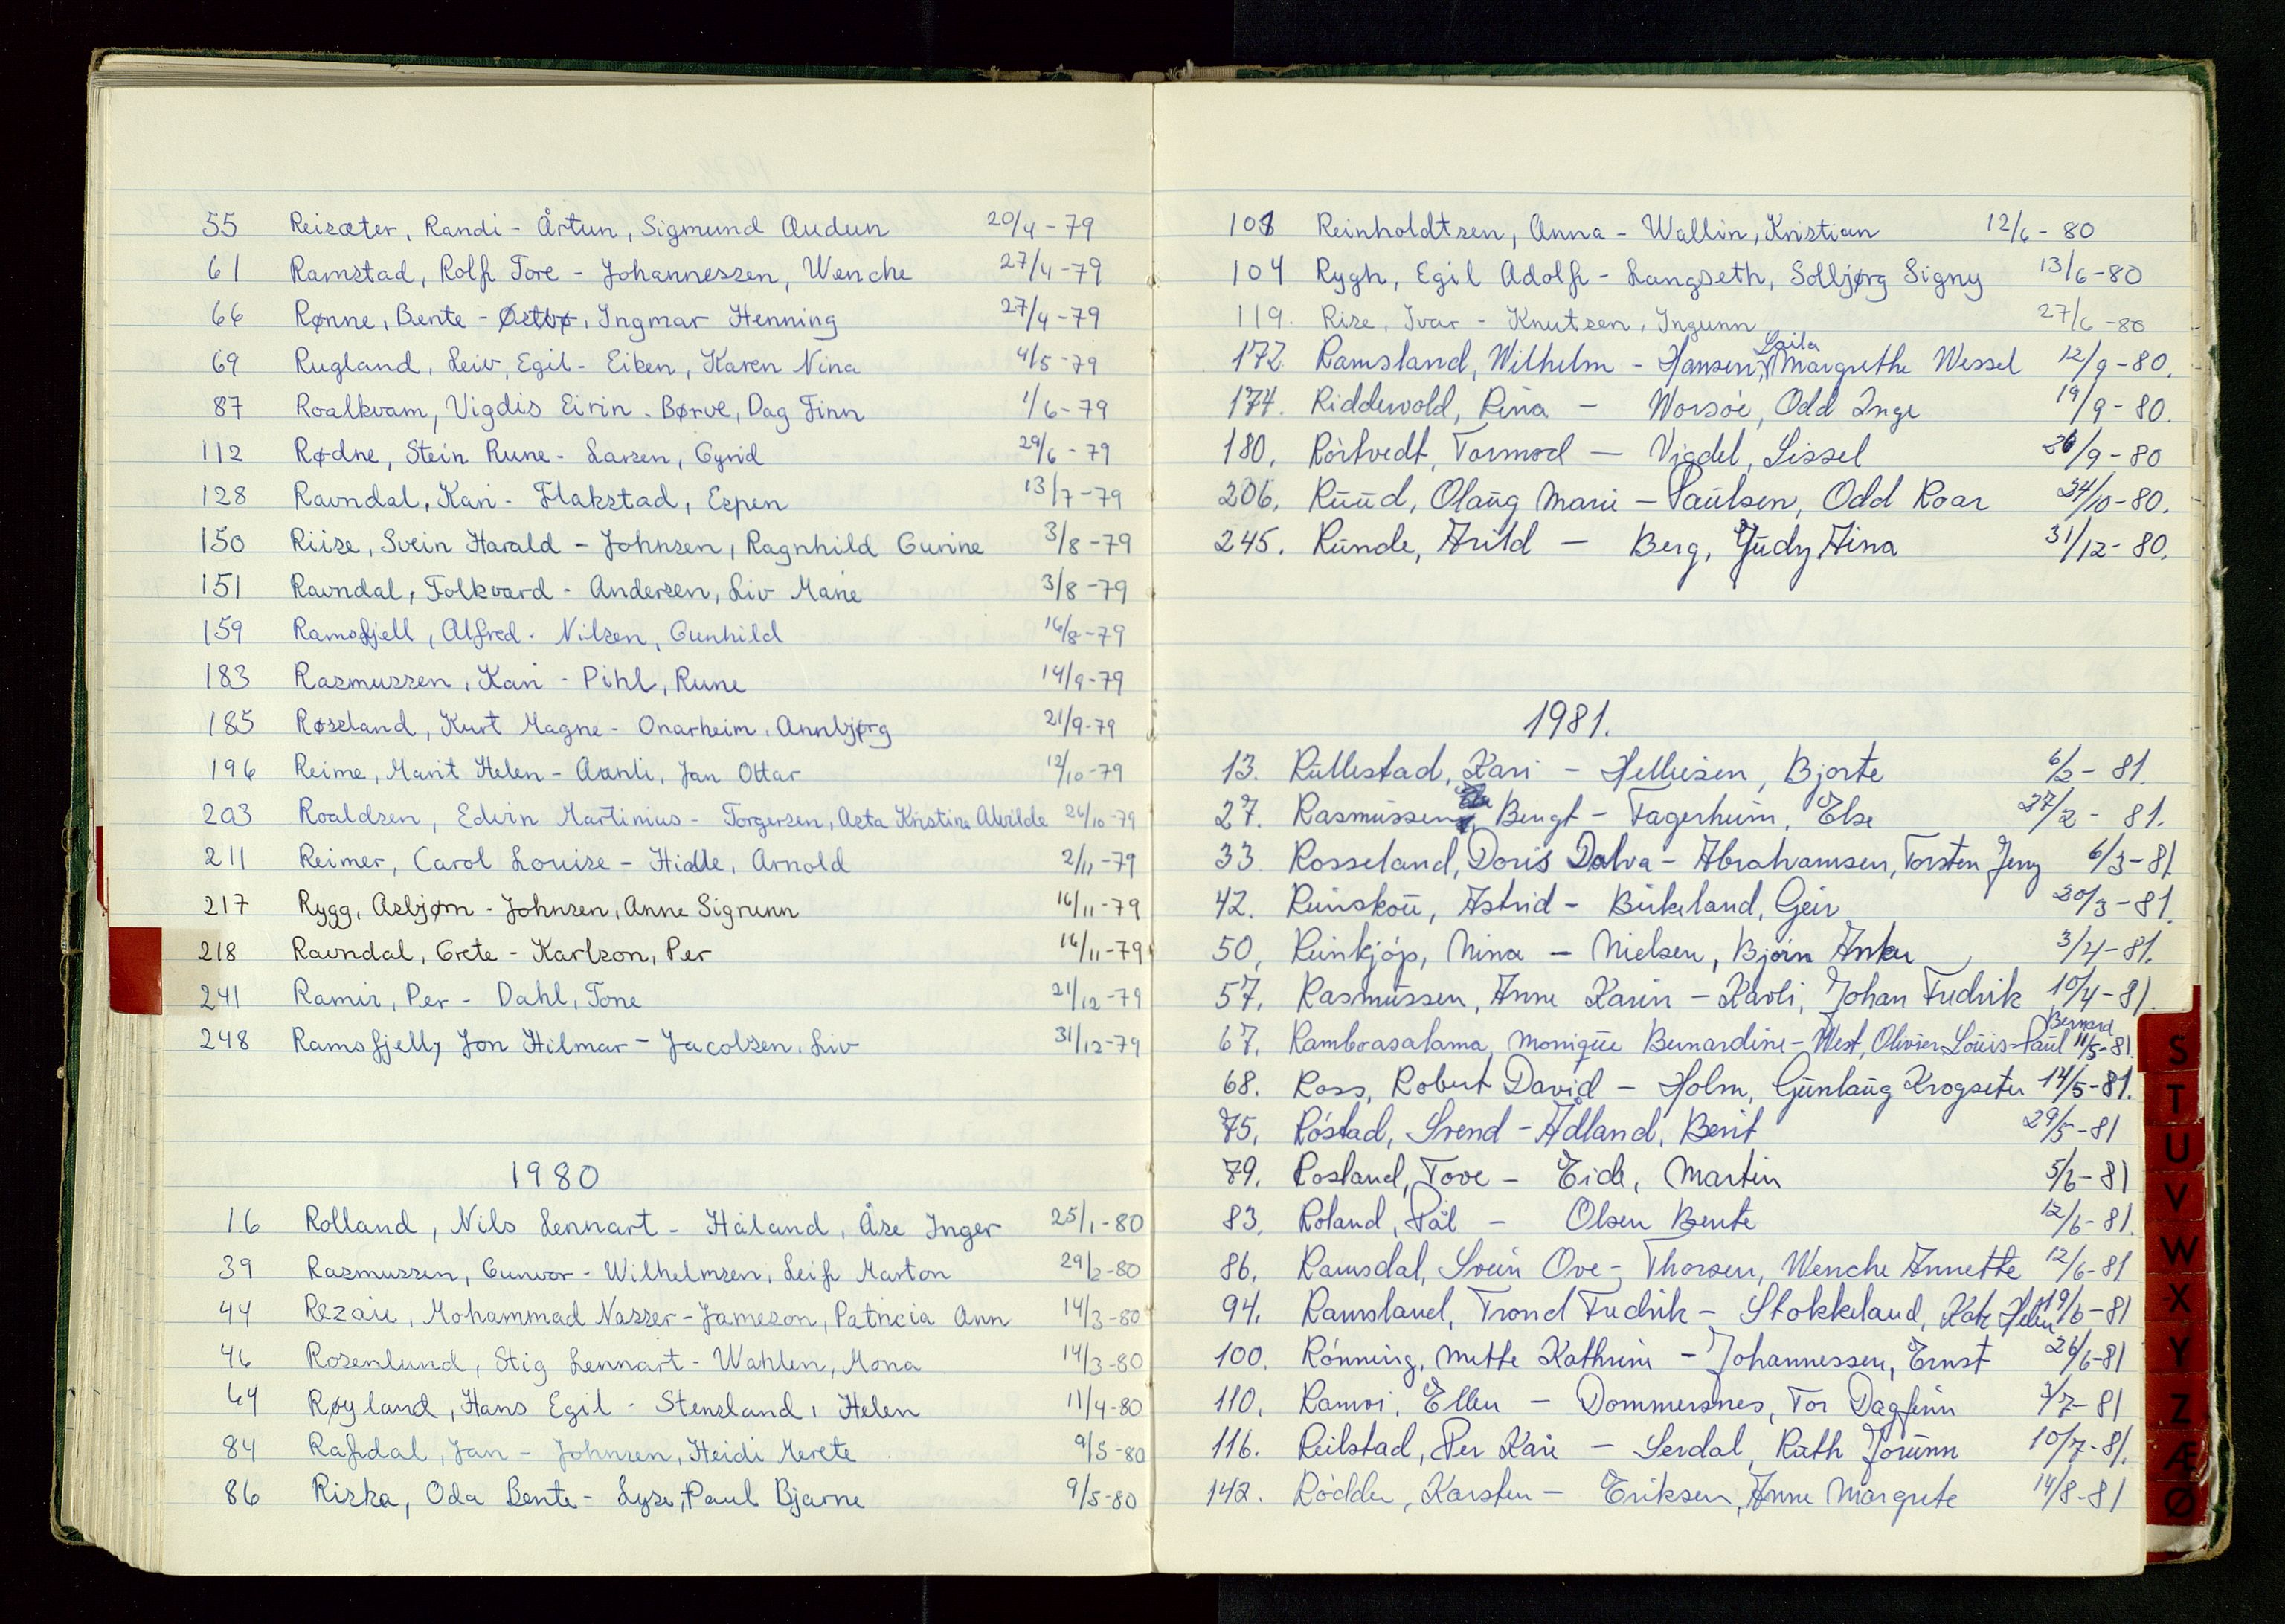 55 Reisæter, Randi - Årtun, Sigmund Audun 20/4 - 79
61 Ramstad, Rolf Tore - Johannessen, Wenche 27/4 - 79
66 Rønne, Bente - Østbø, Ingmar Henning 27/4 - 79
69 Rugland, Leiv, Egil - Eiken, Karen Nina 4/5 - 79
87 Roalkvam, Vigdis Eirin - Børve, Dag Finn 1/6 - 79
112 Rødne, Stein Rune - Larsen, Gyrid 29/6 - 79
128 Ravndal, Kari - Flakstad, Espen 13/7 - 79
150 Riise, Svein Harald - Johnsen, Ragnhild Gurine 3/8 - 79
151 Ravndal, Folkvard - Andersen, Liv Marie 3/8 - 79
159 Ramsfjell, Alfred - Nilsen, Gunhild 16/8 - 79
183 Rasmussen, Kari - Pihl, Rune 14/9 - 79
185 Røseland, Kurt Magne - Onarheim, Annbjørg 21/9 - 79
196 Reime, Marit Helen - Aanli, Jan Ottar 12/10 - 79
203 Roaldsen, Edvin Martinius - Torgersen, Asta Kristine Alvilde 26/10 - 79
211 Reimer, Carol Louise - Hidle, Arnold 2/11 - 79
217 Rygg, Asbjørn - Johnsen, Anne Sigrunn 16/11 - 79
218 Ravndal, Grete - Karlson, Per 16/11 - 79
241 Ramir, Per - Dahl, Tone 21/12 - 79
248 Ramsfjell, Jon Hilmar - Jacobsen, Liv 31/12 - 79
1980
16 Rolland, Nils Lennart - Håland, Åse Inger 25/1 - 80
39 Rasmussen, Gunvor - Wilhelmsen, Leif Marton 29/2 - 80
44 Rezaie, Mohammad Nasser - Jameson, Patricia Ann 14/3 - 80
46 Rosenlund, Stig Lennart - Wahlen, Mona 14/3 - 80
64 Røyland, Hans Egil - Stensland, Helen 11/4 - 80
84 Rafdal, Jan - Johnsen, Heidi Merete 9/5 - 80
86 Riska, Oda Bente - Lyse, Paul Bjarne 9/5 - 80
101 Reinholdtsen, Anna - Wallin, Kristian 12/6 - 80
104 Rygh, Egil Adolf - Langseth, Solbjørg Signy 13/6 - 80
119. Rise, Ivar - Knutsen, Ingunn 27/6 - 80
172 Ramsland, Wilhelm - Hansen, Laila Margrethe Wessel 12/9 - 80.
174. Riddervold, Rina - Worsöe, Odd Inge 19/9 - 80.
180. Rörtvedt, Tormod - Vigdel, Sissel 26/9 - 80
206. Ruud, Olaug Marie - Paulsen, Odd Roar 24/10 - 80.
245. Runde, Arild - Berg, Judy Aina 31/12 - 80.
1981.
13. Rullestad, Kari - Helliesen, Bjarte 6/2 - 81.
27. Rasmussen, Bengt - Fagerheim, Else 27/2 - 81.
33. Rosseland, Doris Dalva - Abrahamsen, Torsten Jeng 6/3 - 81.
42. Reinskou, Astrid - Birkeland, Geir 20/3 - 81.
50. Reinkjöp, Nina - Nielsen, Björn Anker 3/4 - 81.
57. Rasmussen, Anne Karin - Kavli, Johan Fredrik 10/4 - 81.
67. Ramboasalama, Monique Bernardine - West, Olivier Louis-Paul Bernard 11/5 - 81.
68. Ross, Robert David - Holm, Gunlaug Krogseter 14/5 - 81.
75. Röstad, Svend - Ådland, Berit 29/5 - 81
79. Rosland, Tove - Eide, Martin 5/6 - 81
83. Roland, Pål - Olsen Bente 12/6 - 81.
86. Ramsdal, Svein Ove - Thorsen, Wenche Annette 12/6 - 81
94. Ramsland, Trond Fredrik - Stokkeland, Kate Helen 19/6 - 81
100. Rönning, Mette Kathrine - Johannessen, Ernst 26/6 - 81
110. Ramvi, Ellen - Dommersnes, Tor Dagfinn 3/7 - 81
116. Reilstad, Per Kåre - Serdal, Ruth Jorunn 10/7 - 81.
142. Rödder, Karsten - Eriksen, Anne Margrete 14/8 - 81
S
T
U
V
W
X
Y
Z
Æ
Ø